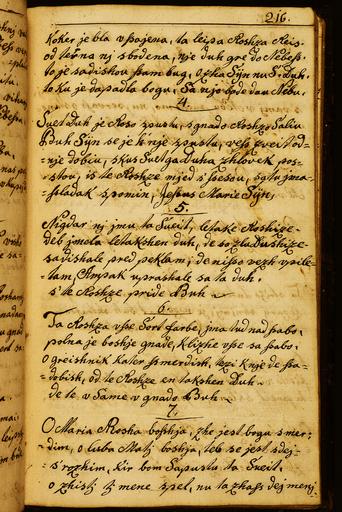 216.
koker je bla v pojena, ta leipa Roshza Reis-
od terna nj sbodena, nje duh gre do Nebess.
to je sadishou sam bug, ozha Sÿn nu S: Duh.
to ku je dapadla bogu, Sa njo bod dau Nebu.
4.
Suet Duh je Roso spustu, s gnado Roshzo Saliu
Buh Sÿn se je k nje spustu, vess zveit od-
nje dobiu, skus Suetga duha zhlovek pos-
stou, is te Roshze mjed s sessou, sgtu jma-
sladak spomin, Jesus Marie Sÿn,
5.
Nigdar nj jmu ta Sueit, letake Roshize-
de b jmola letakshen duh, de so zla dushize
savishale pred peklam, de niso vezh vpile-
tam, Ampak vprashale sa ta duh.
s' te Roshze pride Buh
6.
Ta Roshza vse Sort farbe, jma tud nad sabo,
polna je boshje gnade, klizhe vse sa sabo,
o greishnik kater smerdish, tezi k nje de sa-
dobish, od te Roshze en takshen Duh
de te v Same v gnado Buh
7.
O Maria Rosha boshja, zhe jest bogu smer-
dim, o luba Matj boshja, teb se jest sdej-
s' rozhim, kir bom Sapustu ta Sueit,
o zhisti t mene spel, nu ta zhass dej menj